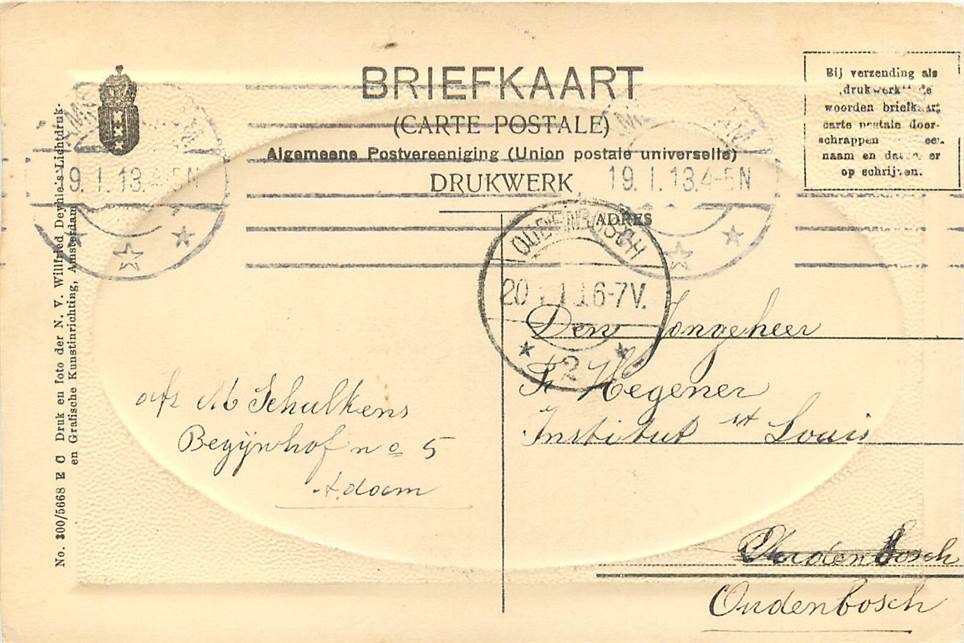 BRIEFKAART
(CARTE POSTALE)
Algemeene Postvereeniging (Union postale universelle)
DRUKWERK
ADRES
Bij verzending als
„drukwerk" de
woorden briefkaart
carte postale door-
schrappen en
naam en datum er
op schrijven.
19.1.13.4-5N
19.1.13.4-5N
OUDENBOSCH
20 1 1 6-7V.
2
No. 300/5668 E C Druk en foto der N. V. Willfried Deyhle's Lichtdruk-
en Grafische Kunstinrichting, Amsterdam
afz M Schulkens
Begijnhof no 5
A.dam
Den Jongeheer
Fr Hegener
Instituut st Louis
Oudenbosch